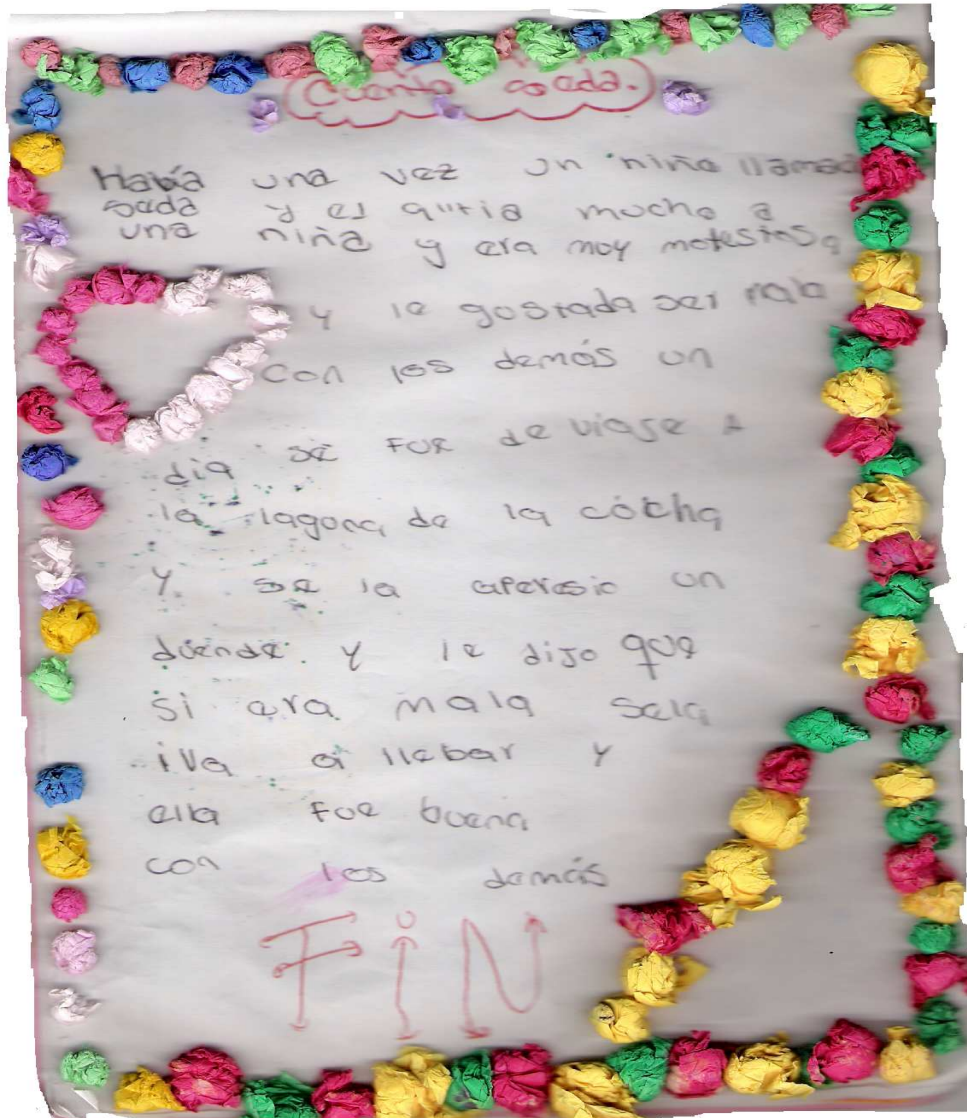 Cuento
Havia una vez un niña llamad
y mucho a
una niña y era moy
y le ser mala
con los demás un
dia se FUe de viaje A
la laguna de la cocha
y se la aperesio un
duende. y le dijo que
si era mala sela
iva a llebar y
ella Fue buena
con los demás
FiN